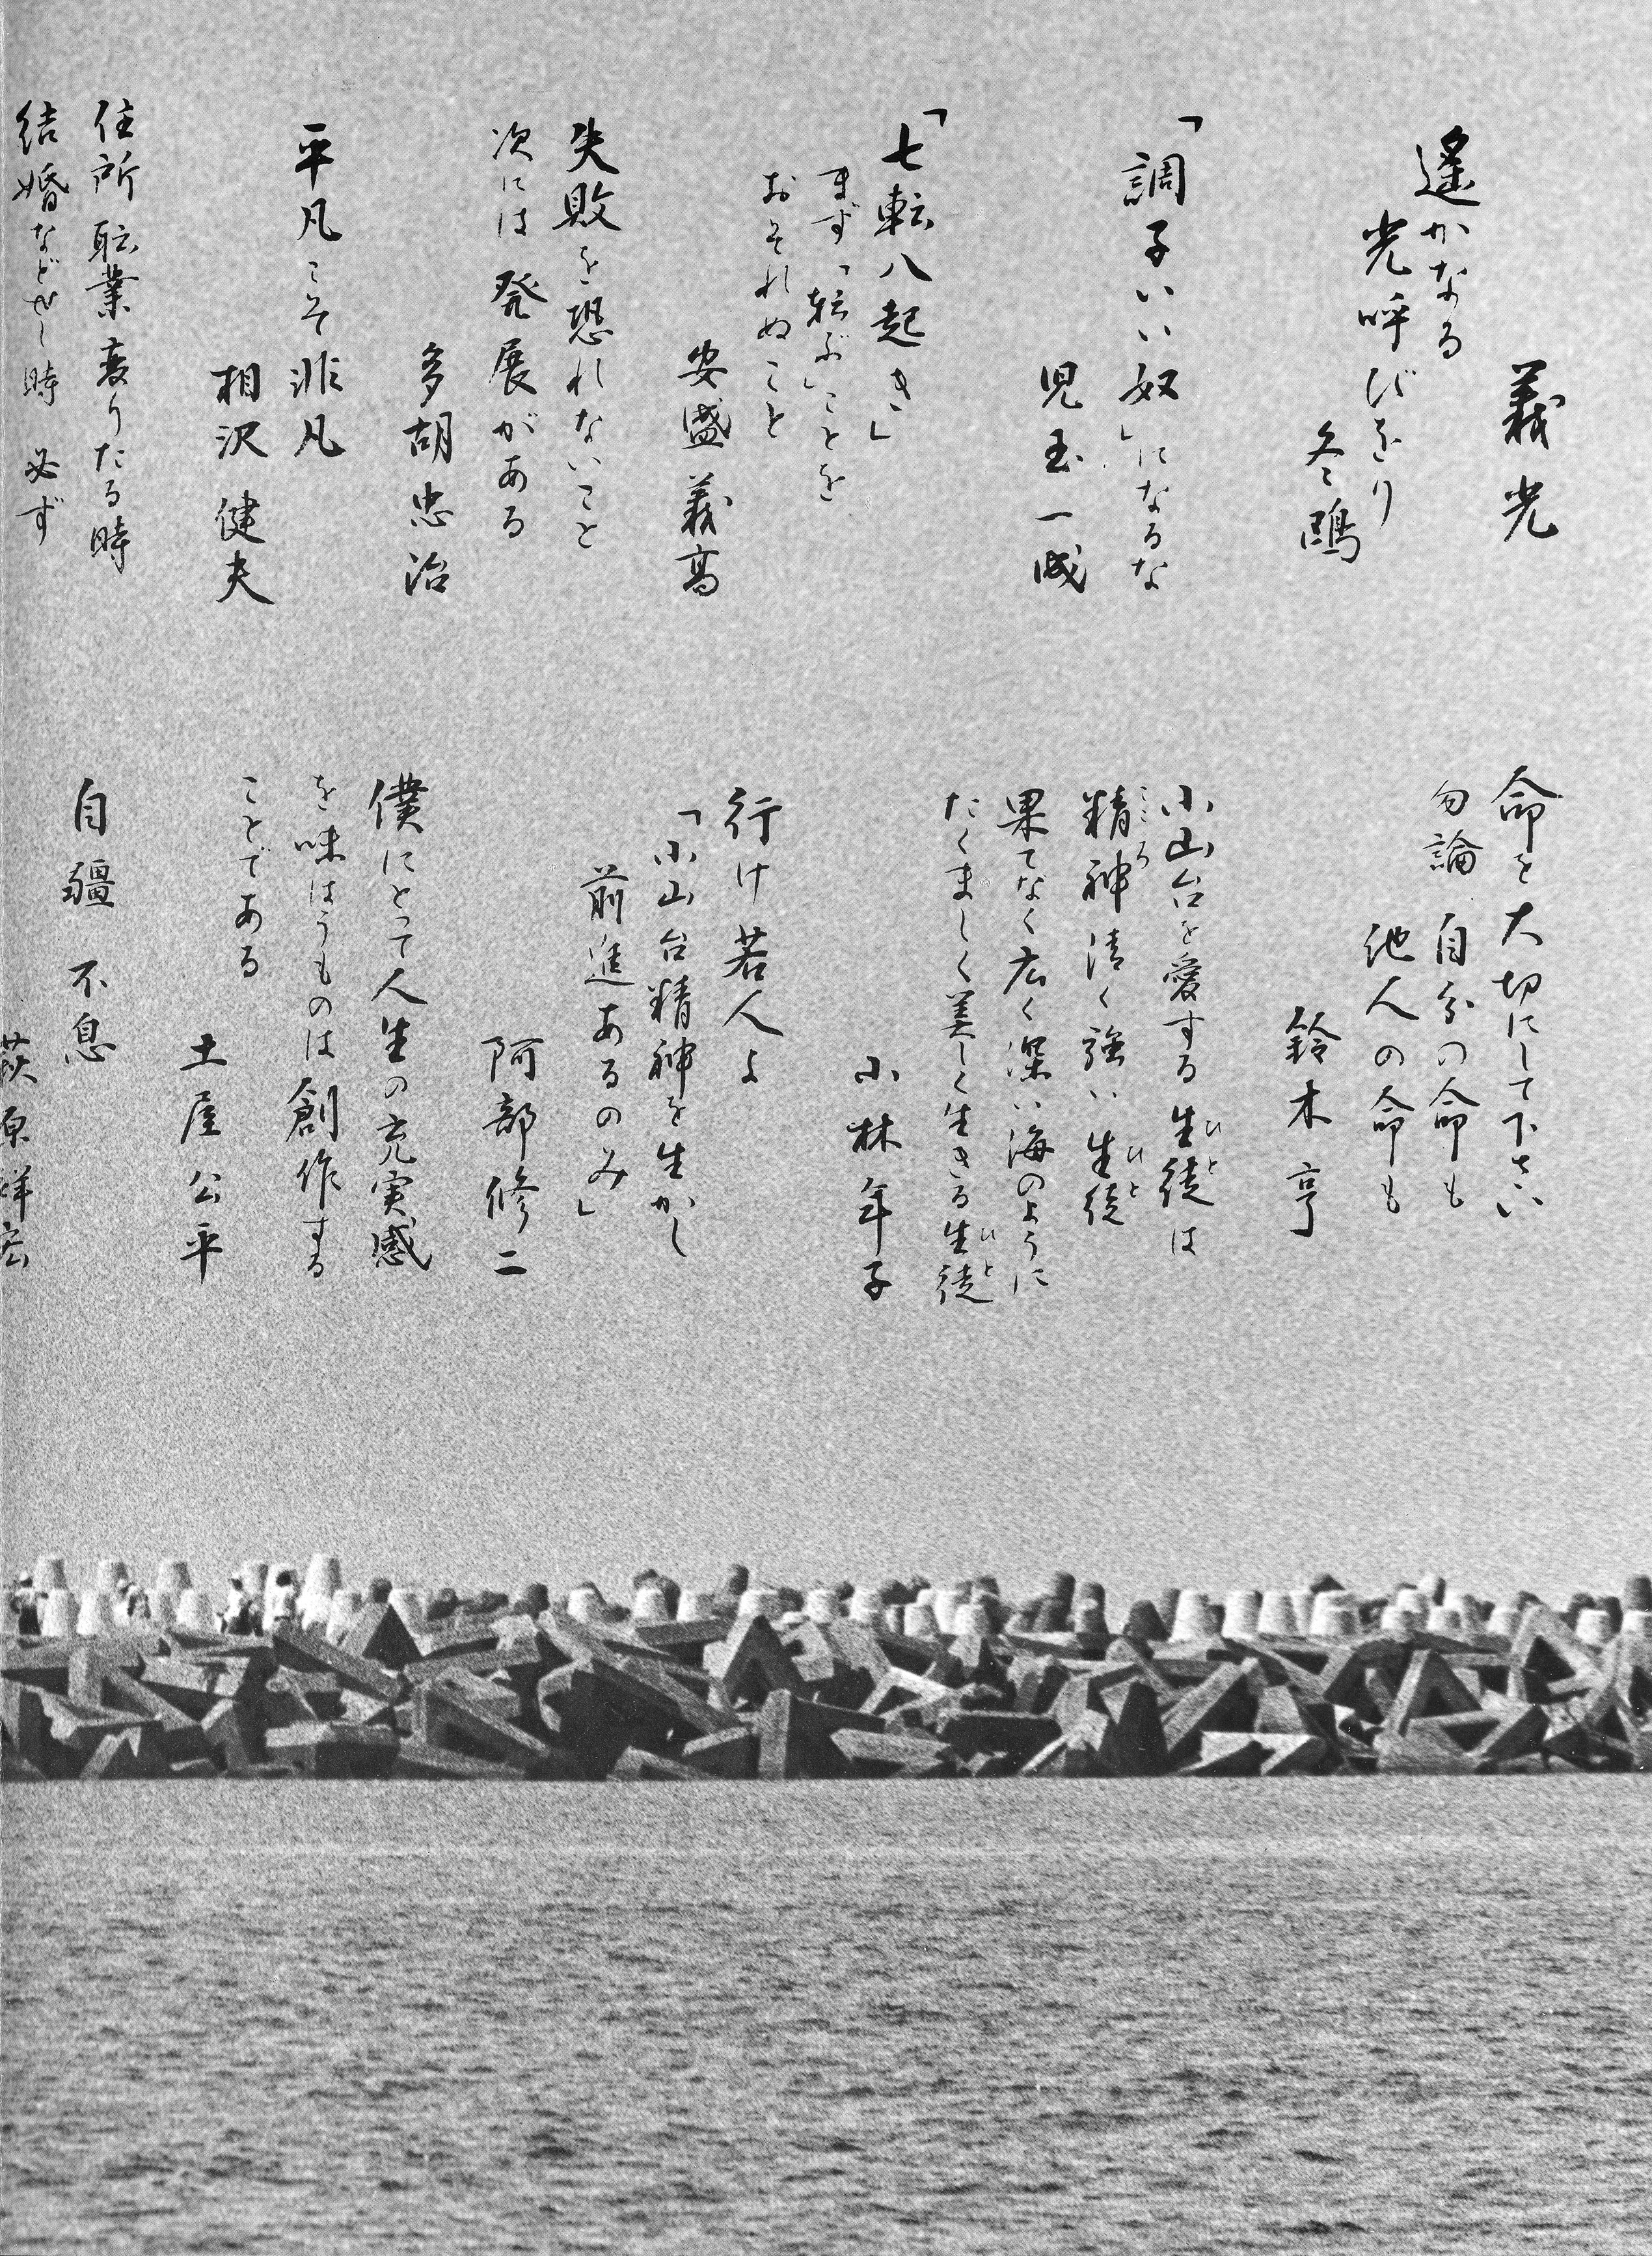 義光
遙かなる
光呼びをり
冬鴎
「調子いい奴」になるな
児玉一成
「七転八起き」
まず「転ぶ」ことを
おそれぬこと
安盛義高
失敗を恐れないこと
次には発展がある
多胡忠治
平凡こそ非凡
相沢健夫
住所転業変りたる時
結婚などせし時 必ず
命を大切にして下さい
勿論 自分の命も
他人の命も
鈴木亨
小山台を愛する生徒は
ひと
精神清く強い生徒
こころ
ひと
果てなく広く深い海のように
たくましく美しく生きる生徒
ひと
小林年子
行け若人よ
「小山台精神を生かし
前進あるのみ」
阿部修二
僕にとって人生の充実感
を味はうものは創作する
ことである
土屋公平
自彊不息
萩原祥宏